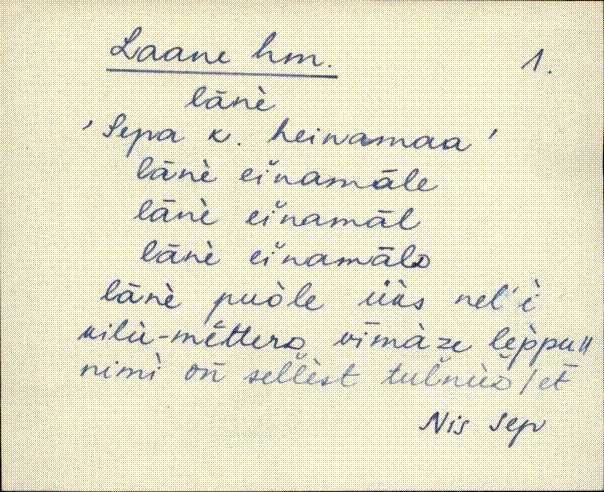 Laane hm.
1.
lānè
'Sepa k. heinamaa'
lānè ei̮namāle
lānè ei̮namāl
lānè ei̮namālɔ
lānè puòle üks nel'è
kilù-mĕtterɔ vīmàze lèppu॥
nimì oñ sellèst tulnùɔ/et
Nis Sep